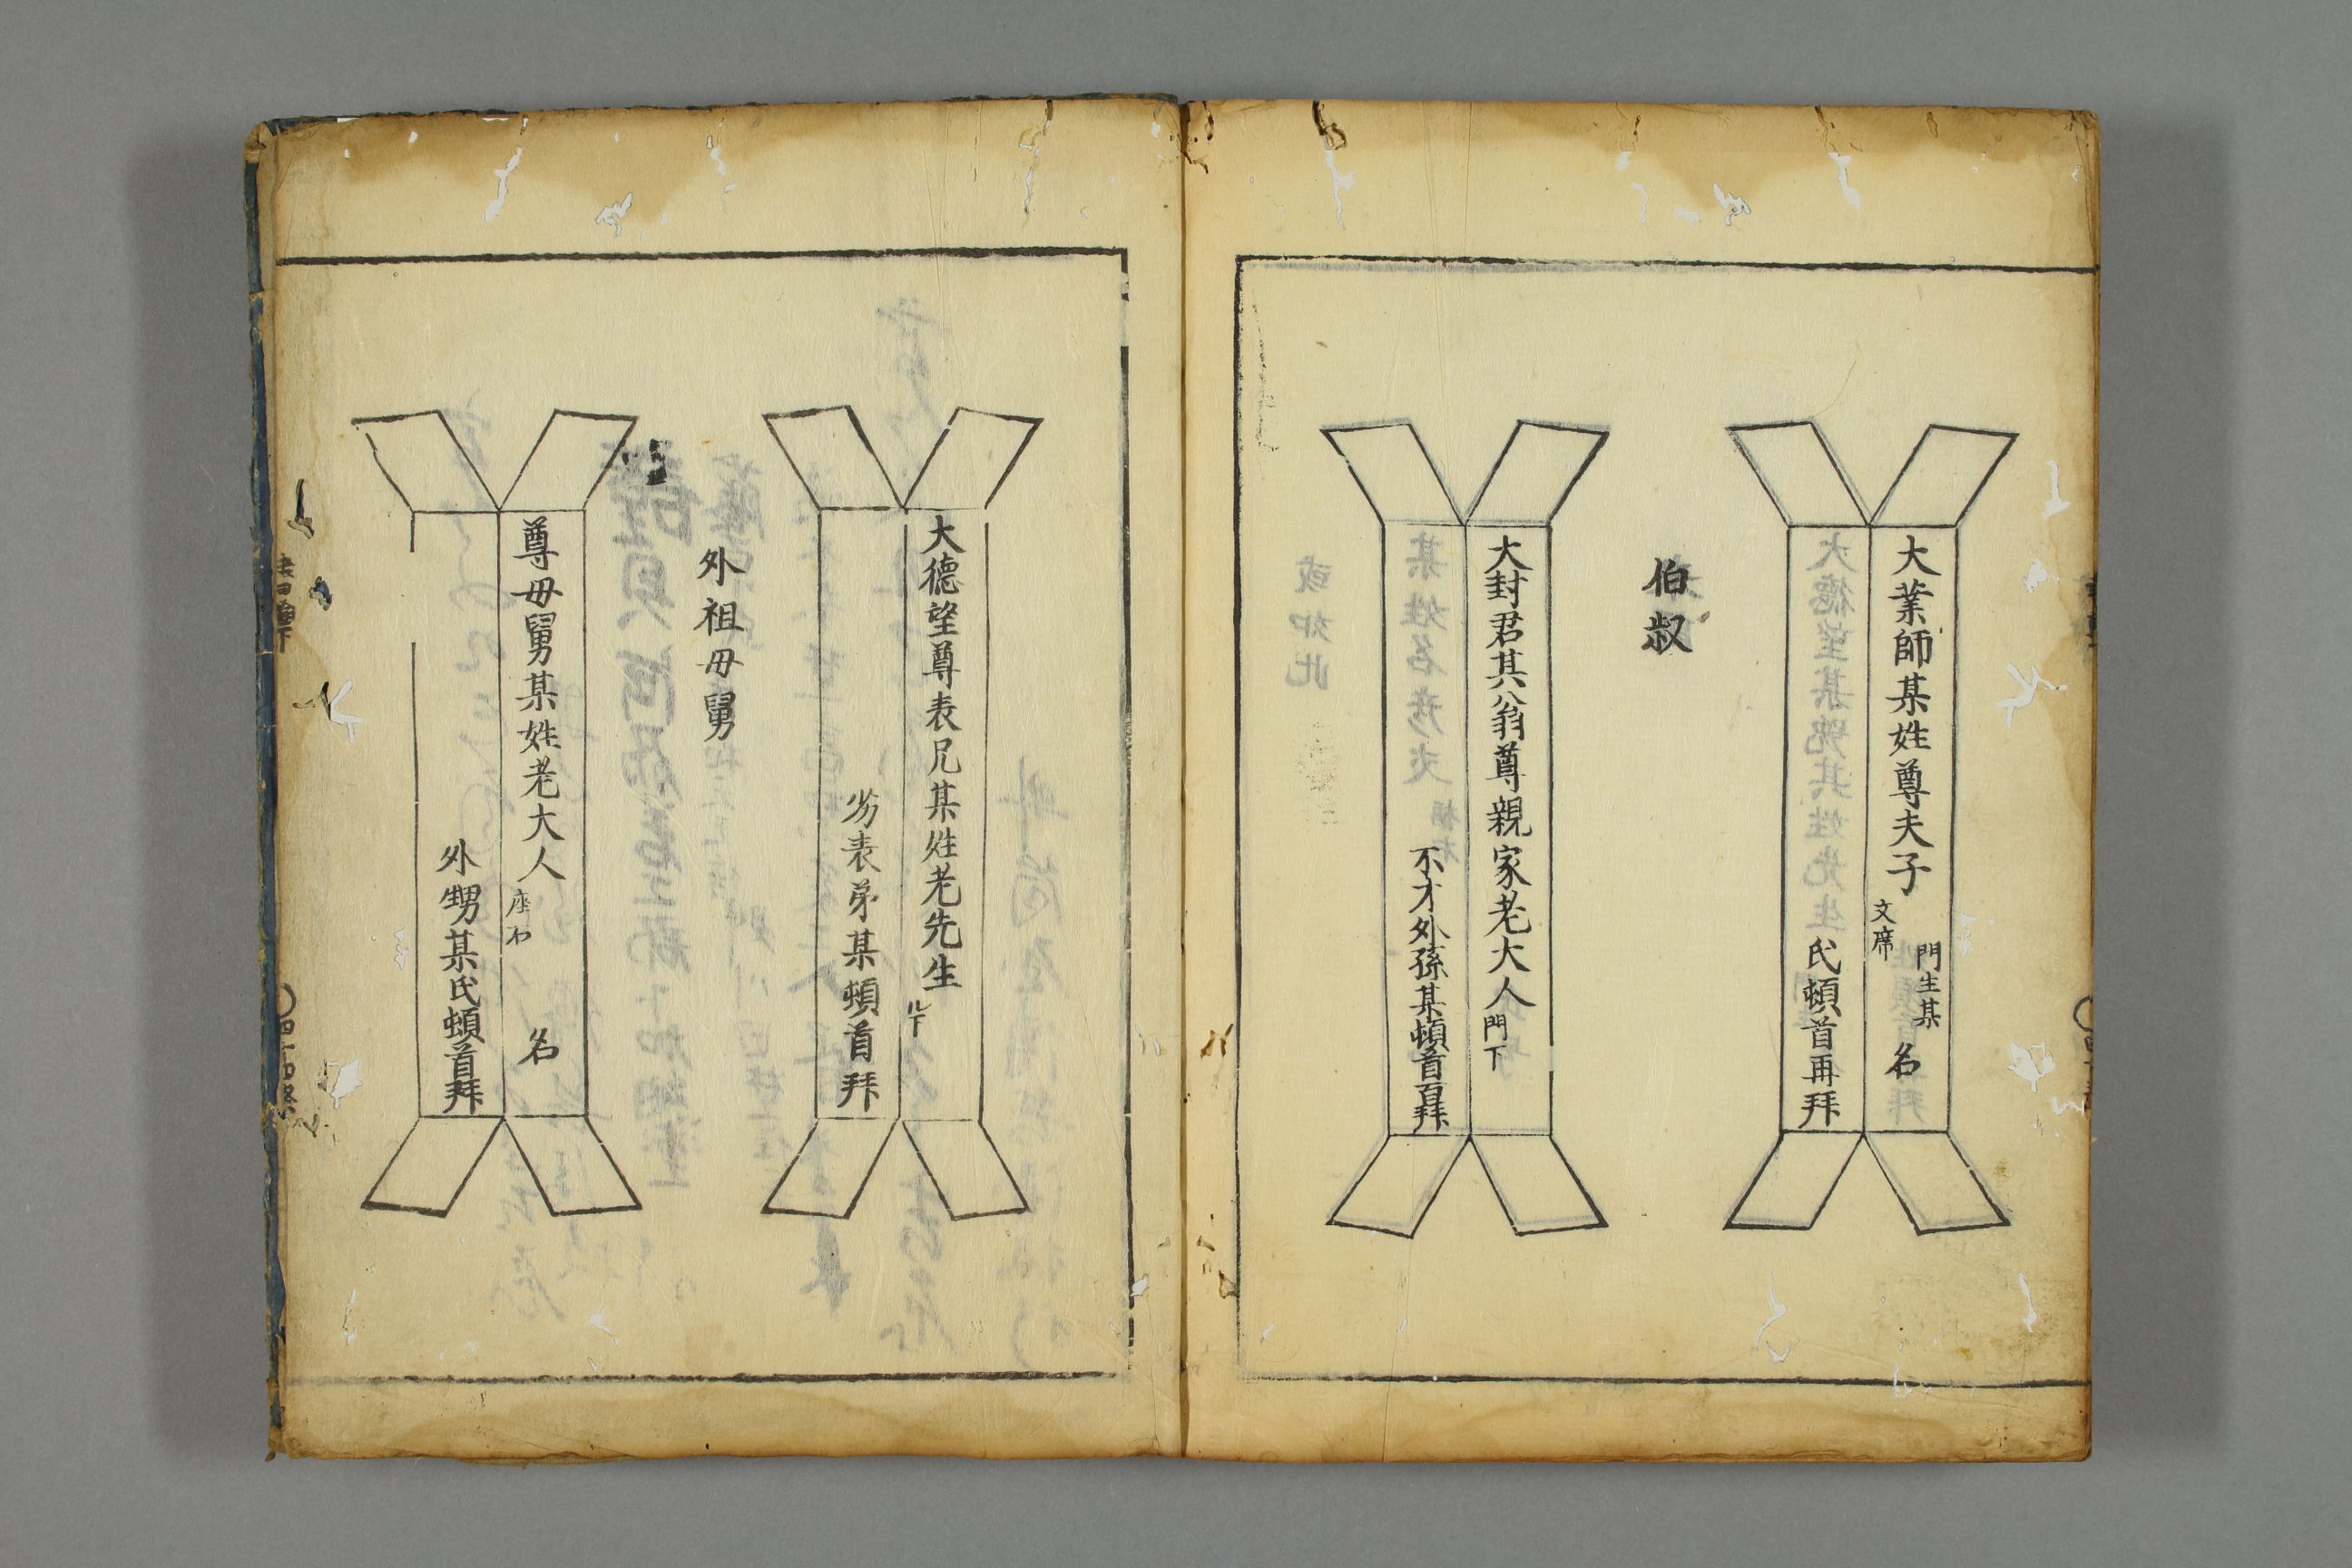 大業師某姓尊夫子
文席
門生某
名
氏頓首再拜
伯叔
大封君其翁尊親家老大人
門下
不才外孫某頓首百拜
大德望尊表兄某姓老先生
劣表弟某頓首拜
外祖母舅
尊母舅某姓老大人
座右
名
外甥某氏頓首拜